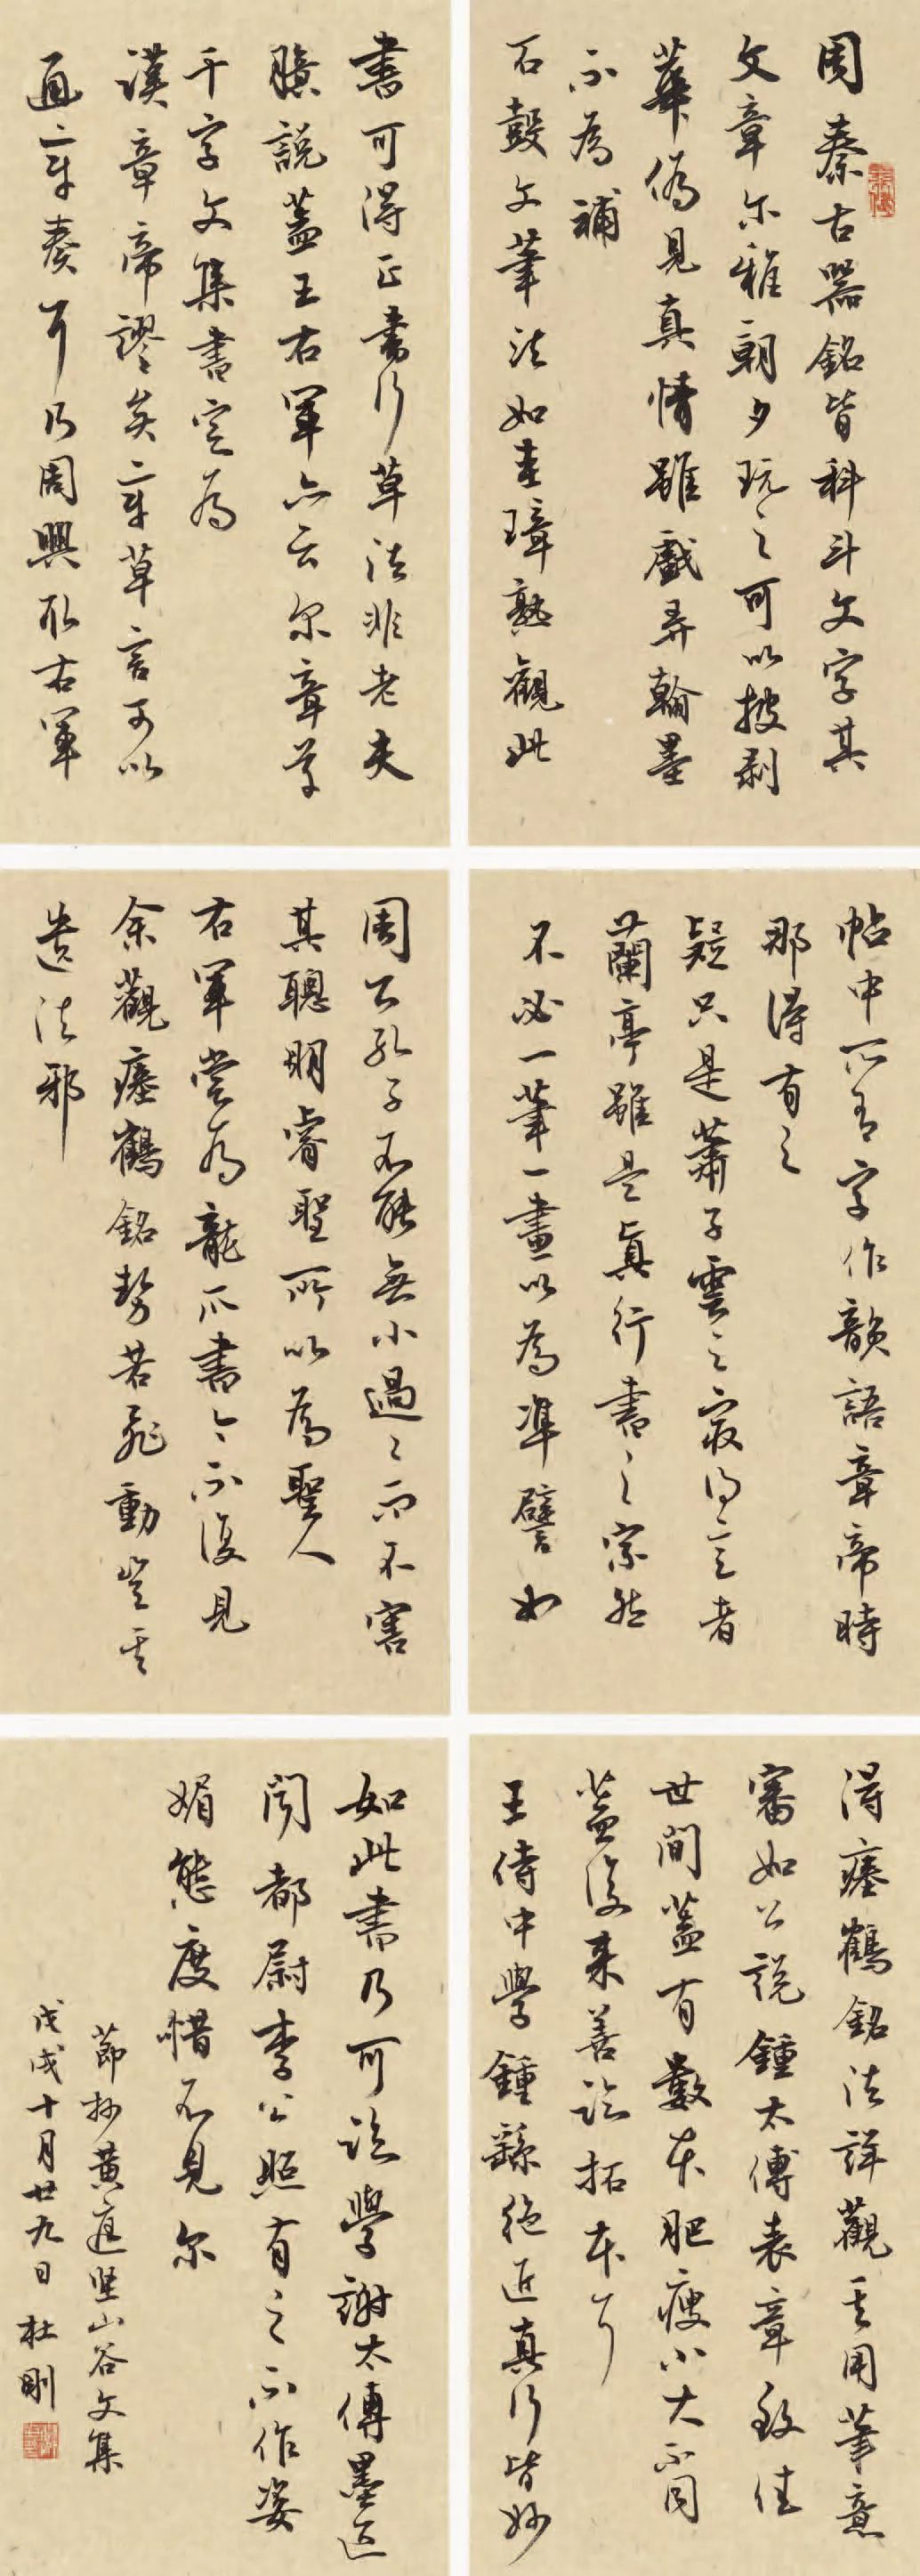 周秦古器銘皆科斗文字其
文章尔雅朝夕玩之可以披剥
華偽見真情雖戲弄翰墨
不為補
石鼓文筆法如圭璋熟觀此
書可得正書行草法非老夫
臆說蓋王右軍亦云尔章草
千字文集書定為
漢章帝謬矣章草言可以
通章奏耳乃周興取右軍
帖中所有字作韻語章帝時
那得有之
疑只是蕭子雲之最得意者
蘭亭雖是真行書之宗然
不必一筆一畫以為準譬如
周公孔子不能無小過〻而不害
其聰明睿聖所以為聖人
右軍嘗為龍爪書今不復見
余觀瘞鶴銘勢若飛動豈其
遺法邪
得瘞鶴銘法詳觀其用筆意
審如公說鍾太傅表章致佳
世間蓋有數本肥瘦小大不同
蓋後來善臨拓本耳
王侍中學鍾繇絕近真行皆妙
如此書乃可臨學謝太傅墨迹
聞都尉李公照有之不作姿
媚態度惜不見尔
節抄黃庭堅山谷文集
戊戌十月廿九日杜剛